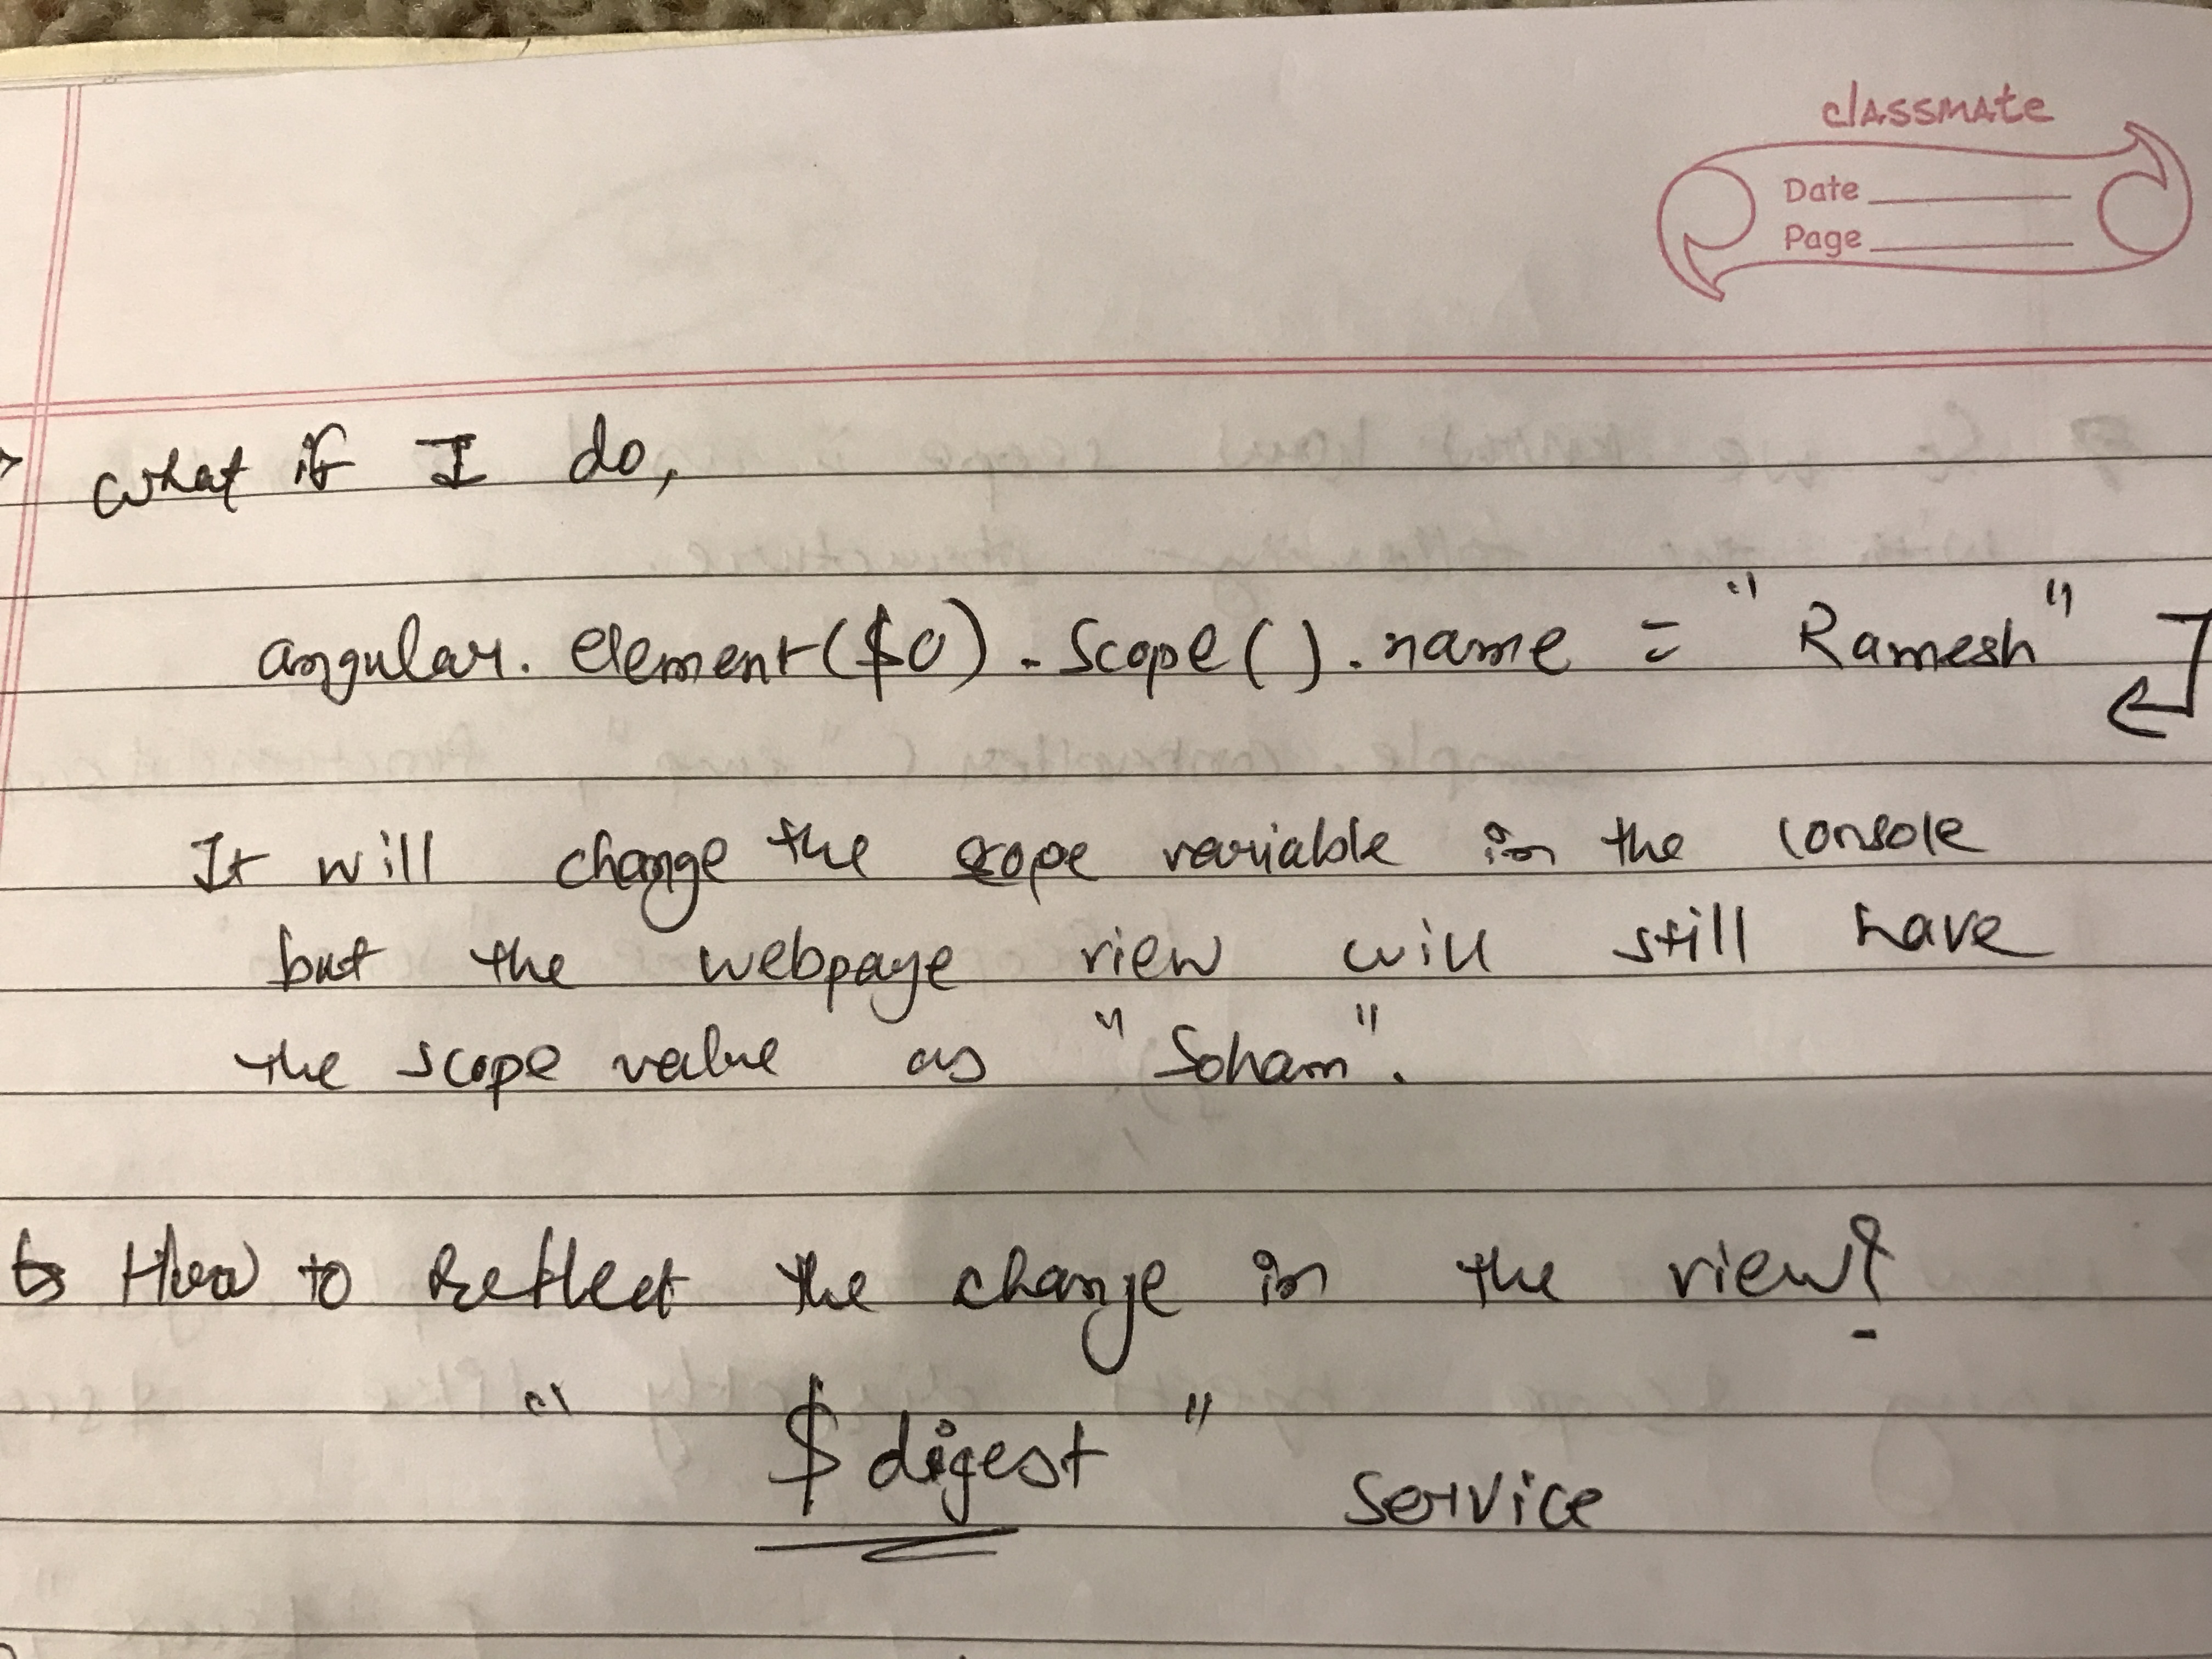 classmate
Date
Page
what if I do,
angular.element($0).scope().name = "Ramesh"
It will change the scope variable in the console
but the webpage view will still have
the scope value as "Soham".
How to Reflect the change in the view?
"$digest" service